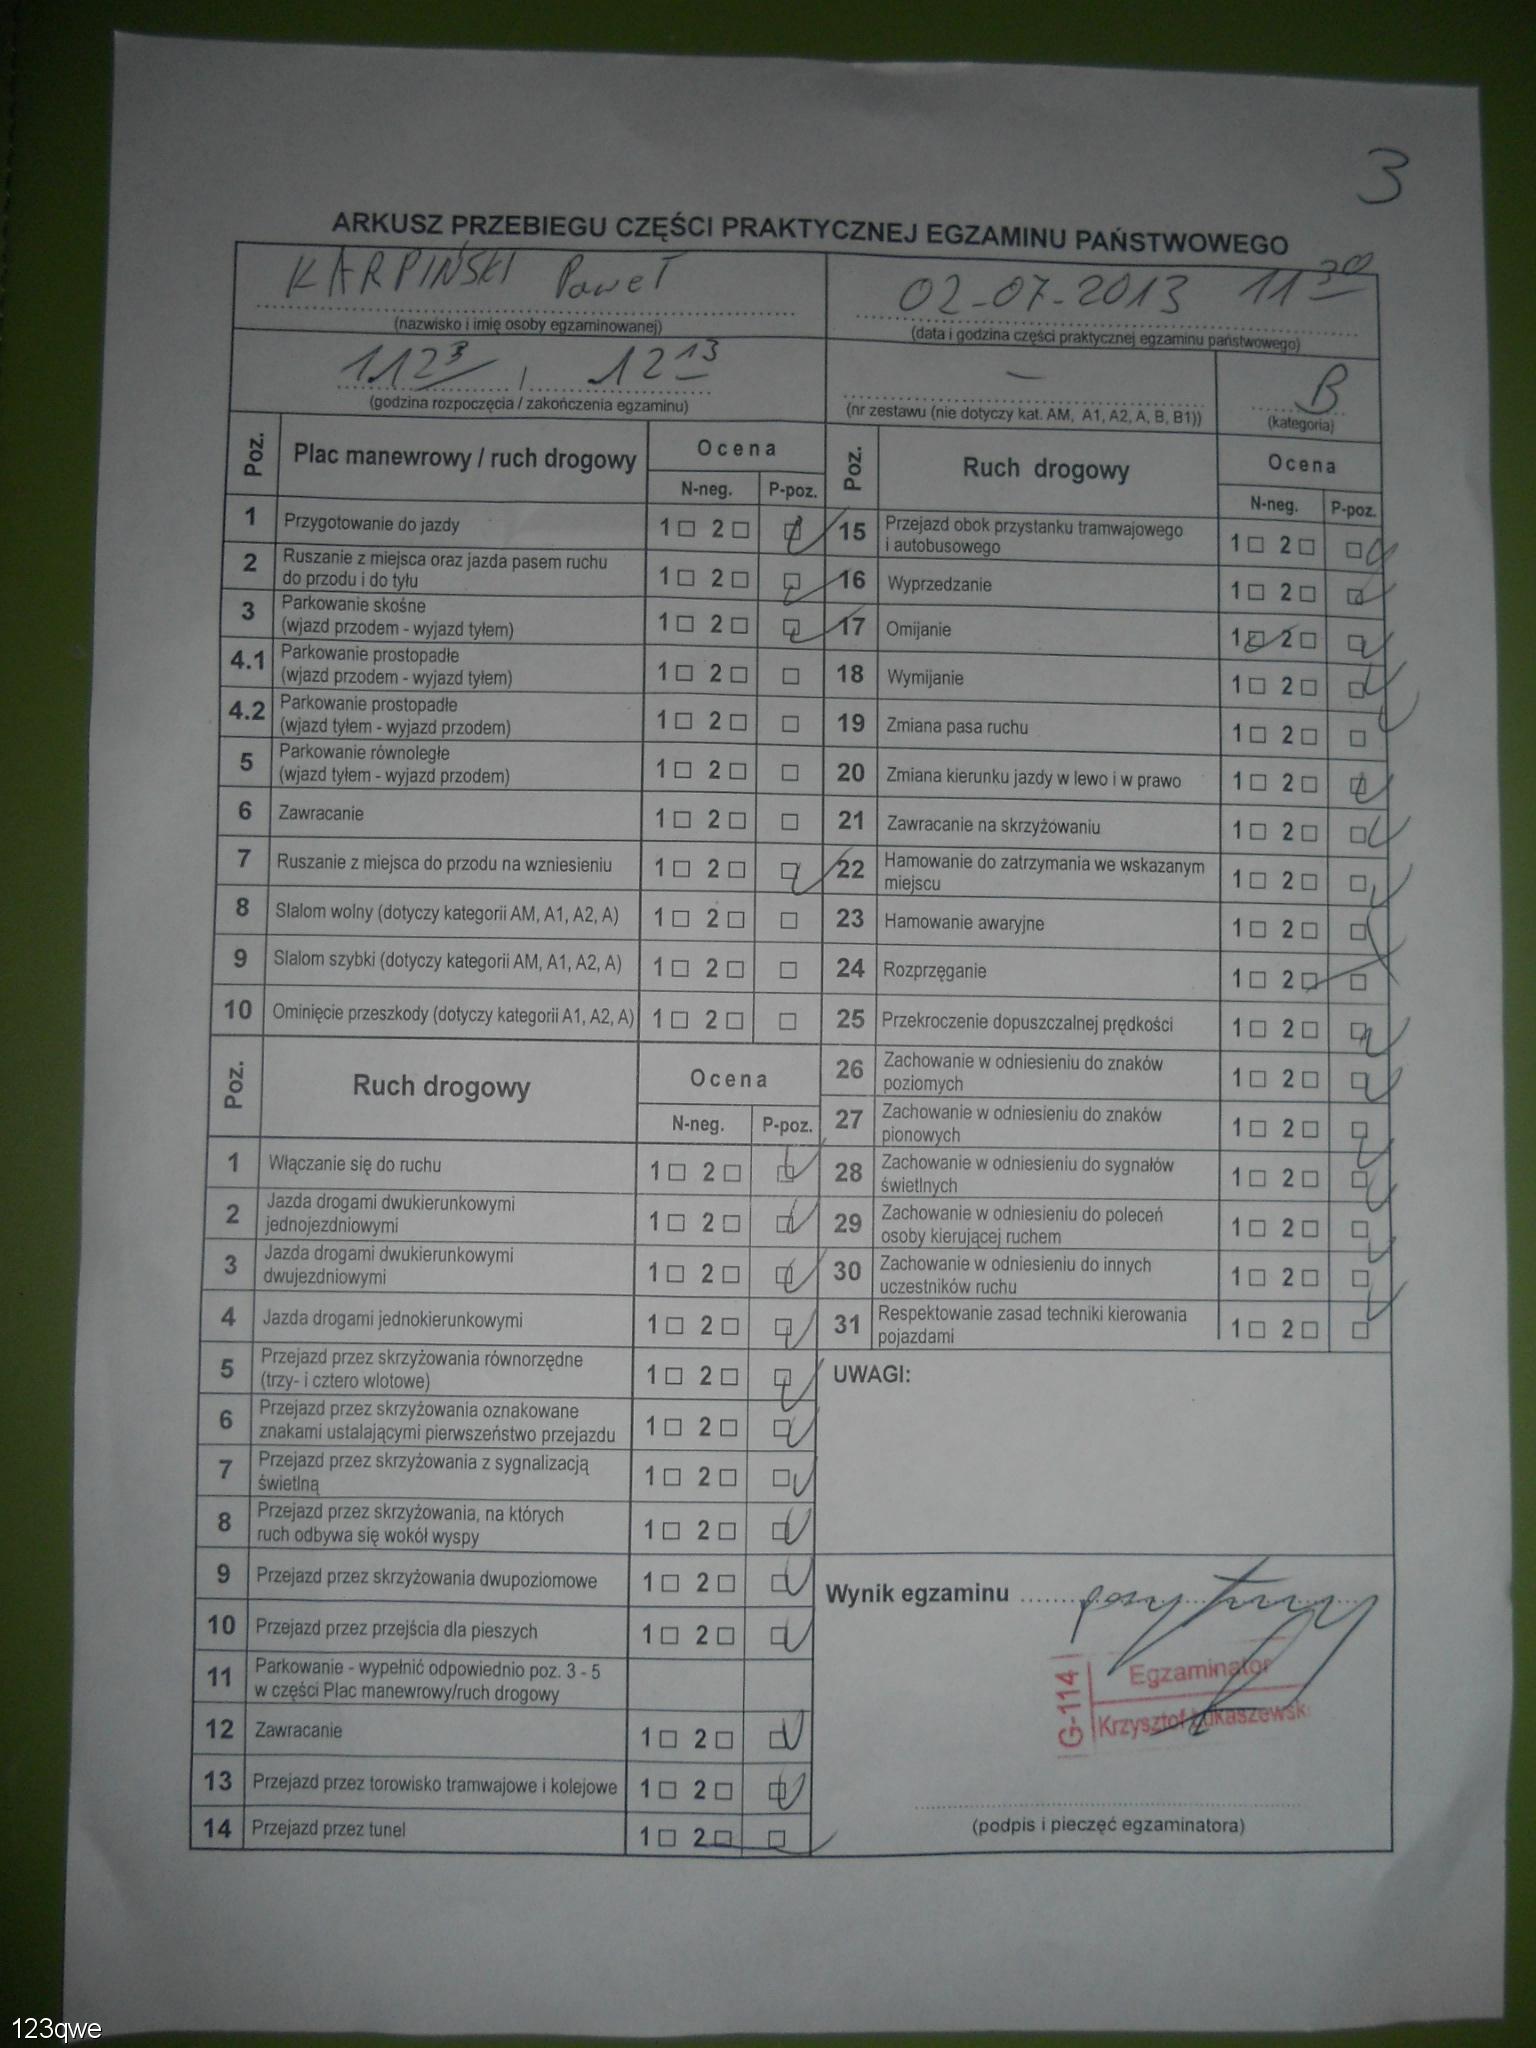 3
ARKUSZ PRZEBIEGU CZĘŚCI PRAKTYCZNEJ EGZAMINU PAŃSTWOWEGO
KARPIŃSKI Paweł
(nazwisko i imię osoby egzaminowanej)
02-07-2013 11 30
(data i godzina części praktycznej egzaminu państwowego)
11 23 / 12 13
(godzina rozpoczęcia / zakończenia egzaminu)
–
(nr zestawu (nie dotyczy kat. AM, A1, A2, A, B, B1))
B
(kategoria)
Poz. Plac manewrowy / ruch drogowy Ocena
N-neg. P-poz.
1 Przygotowanie do jazdy 1 □ 2 □ □
2 Ruszanie z miejsca oraz jazda pasem ruchu
do przodu i do tyłu 1 □ 2 □ □
3 Parkowanie skośne
(wjazd przodem - wyjazd tyłem) 1 □ 2 □ □
4.1 Parkowanie prostopadłe
(wjazd przodem - wyjazd tyłem) 1 □ 2 □ □
4.2 Parkowanie prostopadłe
(wjazd tyłem - wyjazd przodem) 1 □ 2 □ □
5 Parkowanie równoległe
(wjazd tyłem - wyjazd przodem) 1 □ 2 □ □
6 Zawracanie 1 □ 2 □ □
7 Ruszanie z miejsca do przodu na wzniesieniu 1 □ 2 □ □
8 Slalom wolny (dotyczy kategorii AM, A1, A2, A) 1 □ 2 □ □
9 Slalom szybki (dotyczy kategorii AM, A1, A2, A) 1 □ 2 □ □
10 Ominięcie przeszkody (dotyczy kategorii A1, A2, A) 1 □ 2 □ □
Poz. Ruch drogowy Ocena
N-neg. P-poz.
1 Włączanie się do ruchu 1 □ 2 □ □
2 Jazda drogami dwukierunkowymi
jednojezdniowymi 1 □ 2 □ □
3 Jazda drogami dwukierunkowymi
dwujezdniowymi 1 □ 2 □ □
4 Jazda drogami jednokierunkowymi 1 □ 2 □ □
5 Przejazd przez skrzyżowania równorzędne
(trzy- i cztero wlotowe) 1 □ 2 □ □
6 Przejazd przez skrzyżowania oznakowane
znakami ustalającymi pierwszeństwo przejazdu 1 □ 2 □ □
7 Przejazd przez skrzyżowania z sygnalizacją
świetlną 1 □ 2 □ □
8 Przejazd przez skrzyżowania, na których
ruch odbywa się wokół wyspy 1 □ 2 □ □
9 Przejazd przez skrzyżowania dwupoziomowe 1 □ 2 □ □
10 Przejazd przez przejścia dla pieszych 1 □ 2 □ □
11 Parkowanie - wypełnić odpowiednio poz. 3 - 5
w części Plac manewrowy/ruch drogowy
12 Zawracanie 1 □ 2 □ □
13 Przejazd przez torowisko tramwajowe i kolejowe 1 □ 2 □ □
14 Przejazd przez tunel 1 □ 2 □ □
Poz. Ruch drogowy Ocena
N-neg. P-poz.
15 Przejazd obok przystanku tramwajowego
i autobusowego 1 □ 2 □ □
16 Wyprzedzanie 1 □ 2 □ □
17 Omijanie 1 □ 2 □ □
18 Wymijanie 1 □ 2 □ □
19 Zmiana pasa ruchu 1 □ 2 □ □
20 Zmiana kierunku jazdy w lewo i w prawo 1 □ 2 □ □
21 Zawracanie na skrzyżowaniu 1 □ 2 □ □
22 Hamowanie do zatrzymania we wskazanym
miejscu 1 □ 2 □ □
23 Hamowanie awaryjne 1 □ 2 □ □
24 Rozprzęganie 1 □ 2 □ □
25 Przekroczenie dopuszczalnej prędkości 1 □ 2 □ □
26 Zachowanie w odniesieniu do znaków
poziomych 1 □ 2 □ □
27 Zachowanie w odniesieniu do znaków
pionowych 1 □ 2 □ □
28 Zachowanie w odniesieniu do sygnałów
świetlnych 1 □ 2 □ □
29 Zachowanie w odniesieniu do poleceń
osoby kierującej ruchem 1 □ 2 □ □
30 Zachowanie w odniesieniu do innych
uczestników ruchu 1 □ 2 □ □
31 Respektowanie zasad techniki kierowania
pojazdami 1 □ 2 □ □
UWAGI:
Wynik egzaminu pozytywny
G-114
Egzaminator
Krzysztof Łukaszewsk
(podpis i pieczęć egzaminatora)
123qwe